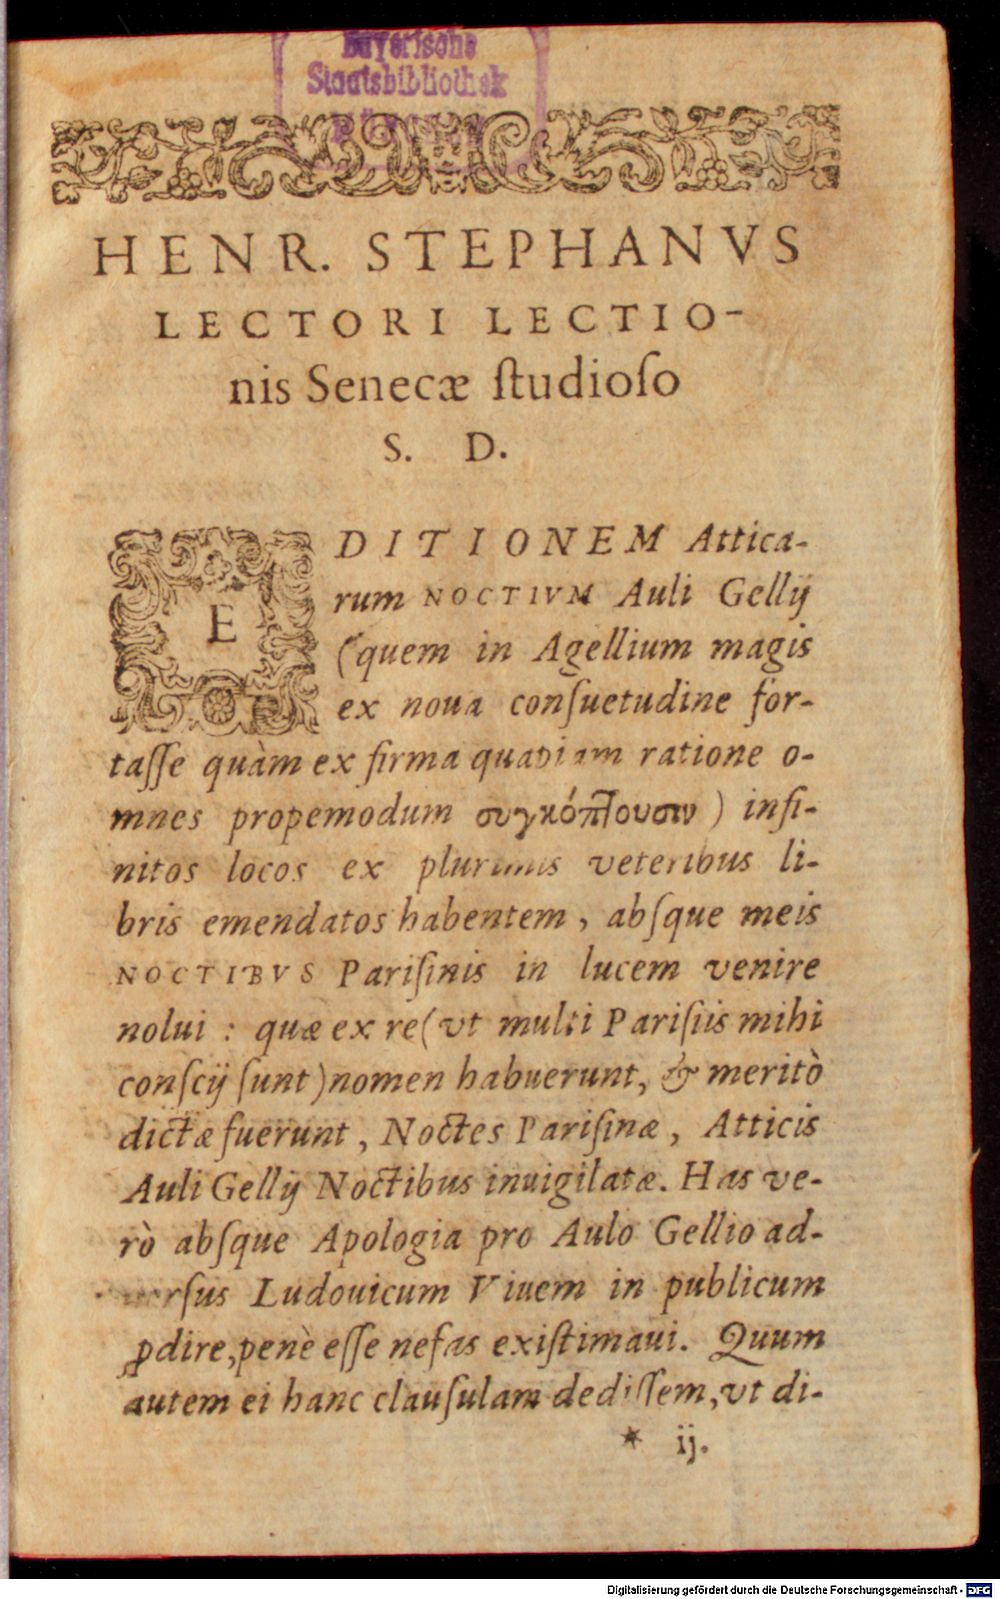 Bayerische
Staatsbibliothek
HENR. STEPHANVS
LECTORI LECTIO-
nis Senecæ ſtudioſo
S. D.
EDITIONEM Attica-
rum NOCTIVM Auli Gellij
(quem in Agellium magis
ex noua conſuetudine for-
taſſe quàm ex firma quapiam ratione o-
mnes propemodum συγκόπτουσιν) infi-
nitos locos ex plurimis veteribus li-
bris emendatos habentem, abſque meis
NOCTIBVS Pariſinis in lucem venire
nolui : quæ ex re (vt multi Pariſiis mihi
conſcij ſunt) nomen habuerunt, & meritò
dictæ fuerunt, Noctes Pariſinæ, Atticis
Auli Gellij Noctibus inuigilatæ. Has ve-
rò abſque Apologia pro Aulo Gellio ad-
uerſus Ludouicum Viuem in publicum
ꝓdire, penè eſſe nefas exiſtimaui. Quum
autem ei hanc clauſulam dediſſem, vt di-
* ij.
Digitalisierung gefördert durch die Deutsche Forschungsgemeinschaft - DFG